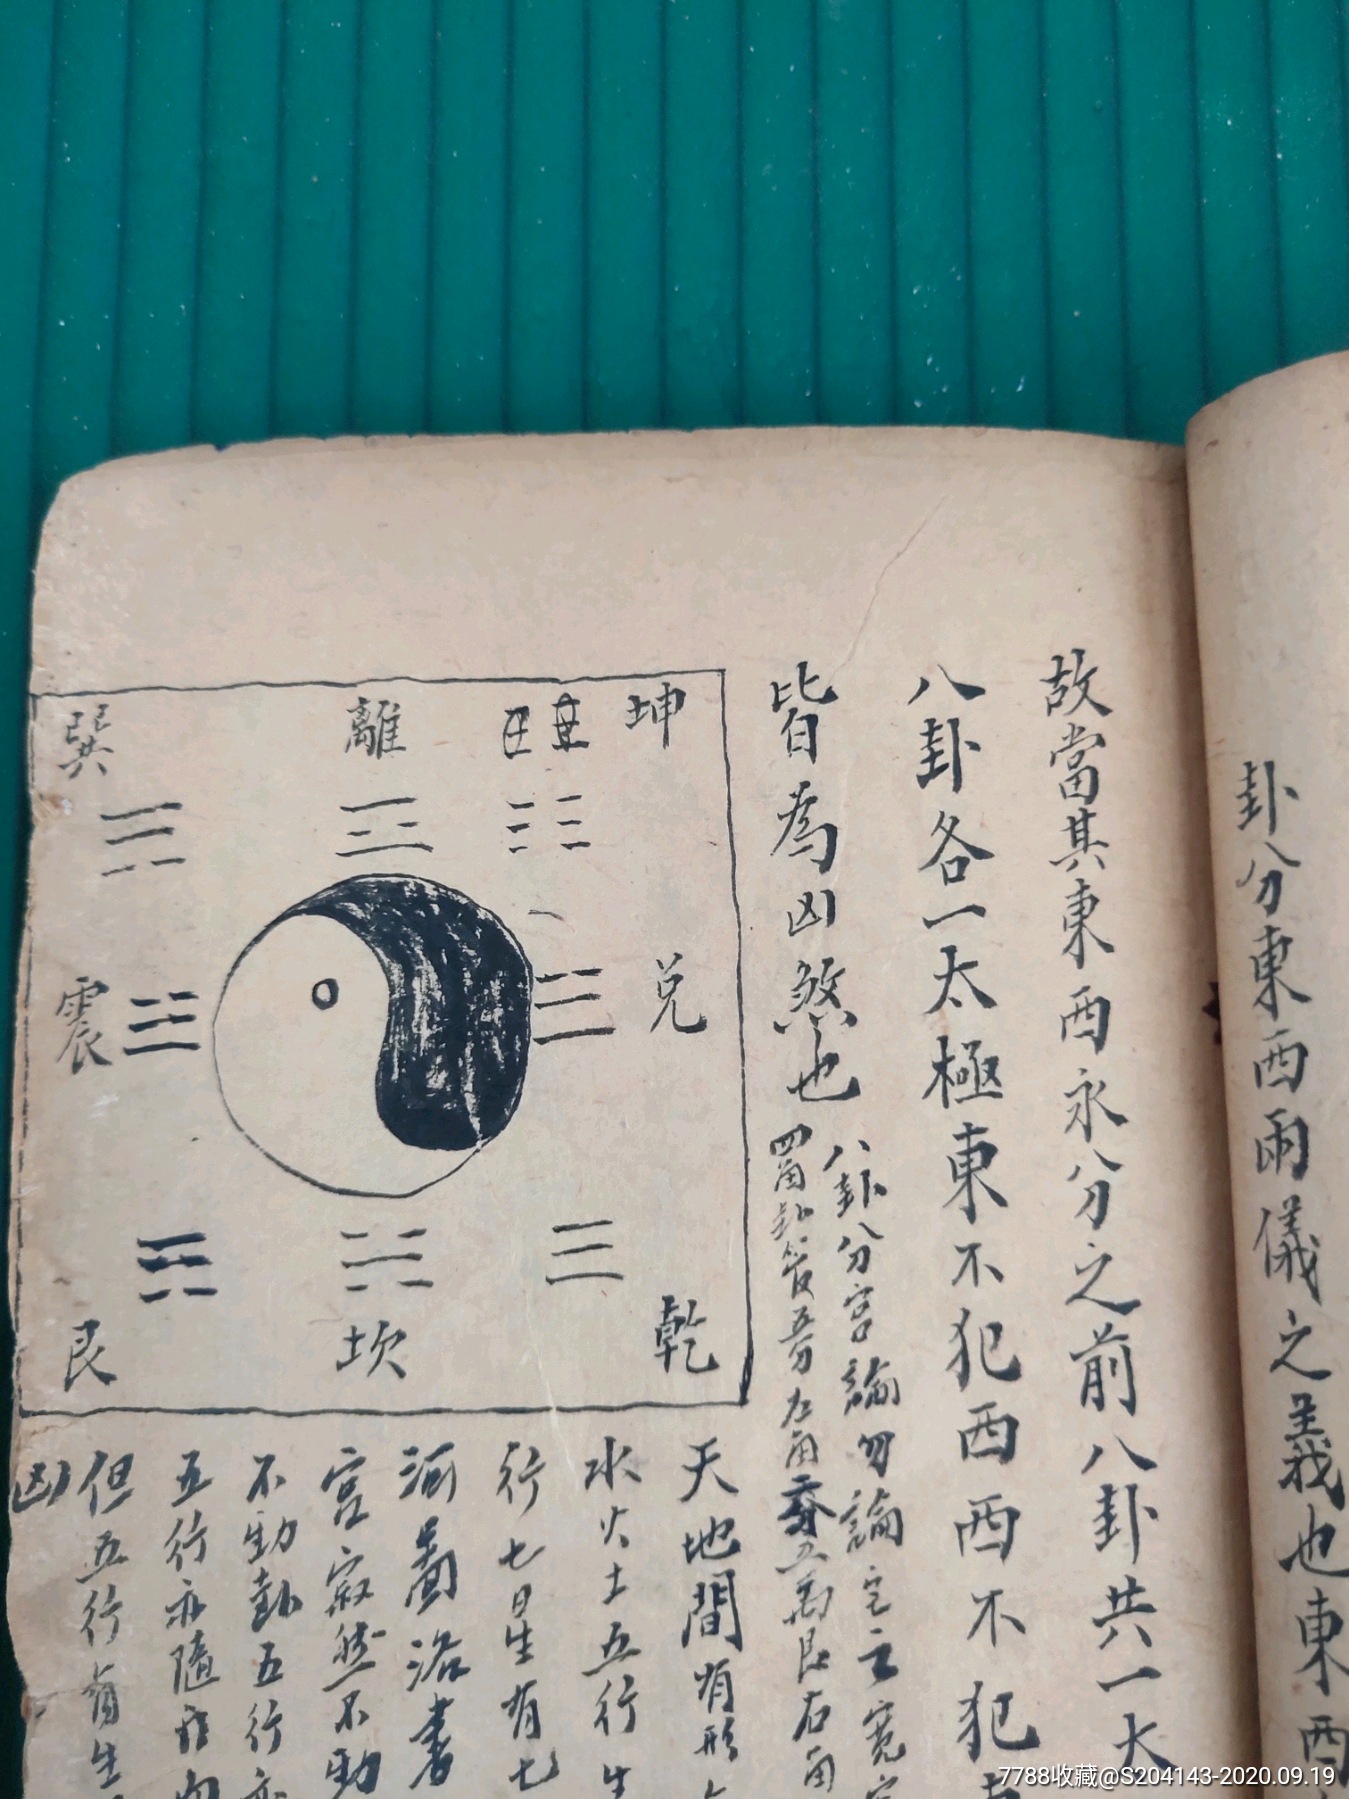 卦分東西兩儀之義也東西
故當其東西永分之前八卦共一太
八卦各一太極東不犯西西不犯東
皆為凶煞也
八卦分宮論勿論
坤
離
巽
兌
震
乾
坎
艮
天地間有形
水火土五行生
行七星有七
河圖洛書
宮寂然不動
不動卦五行亦
五行亦隨
但五行有生
凶
7788收藏@S204143-2020.09.19